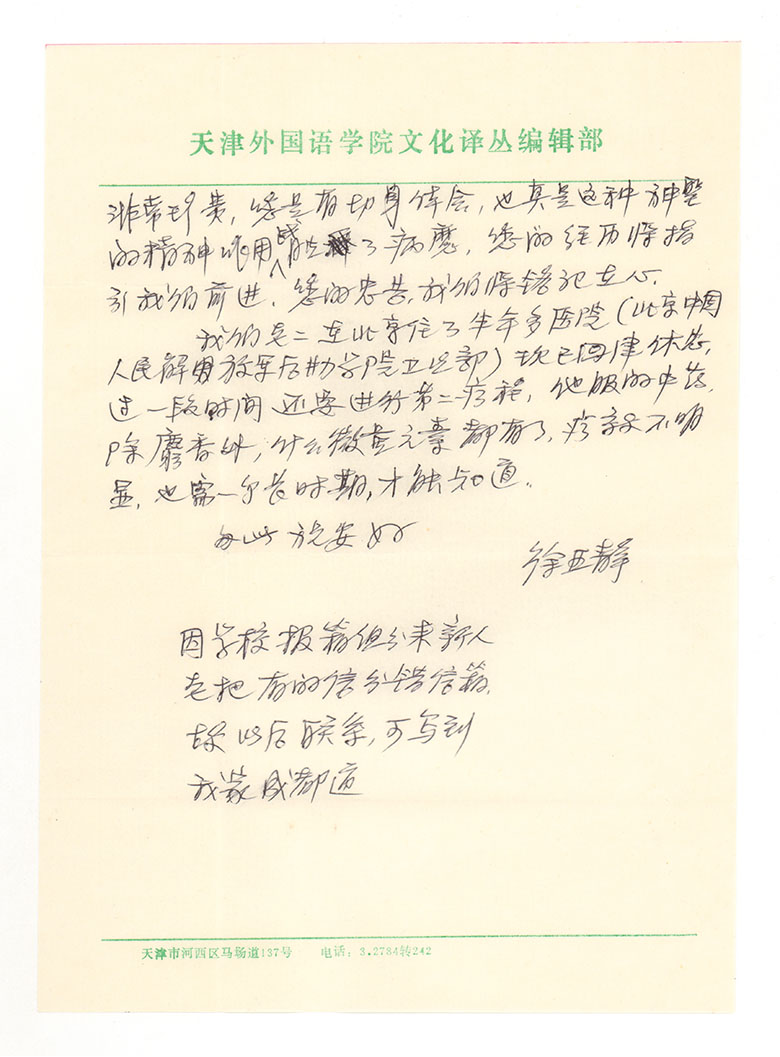 天津外国语学院文化译丛编辑部
非常珍贵，您是有切身体会，也真是这种神圣
的精神作用战胜了病魔，您的经历将指
引我们前进，您的忠告，我们将铭记在心。
我们老二在北京住了半年多医院（北京中国
人民解放军后勤学院卫生部）现已回津休养，
过一段时间还要进行第二疗程，他服的中药，
除麝香外，什么微量元素都有了，疗效不明
显，也需一个长时期，才能知道。
为此 祝安好
徐亚静
因学校报箱组分来新人
老把有的信分错信箱，
故以后联系，可写到
我家成都道
天津市河西区马场道137号 电话：3.2784转242